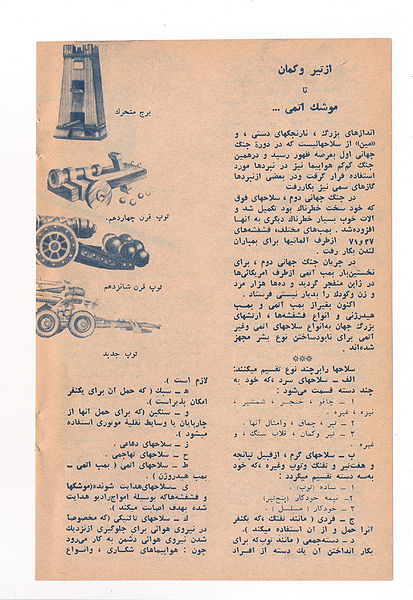 از تیر و کمان
تا
موشک اتمی ...
اندازهای بزرگ ، نارنجکهای دستی ، و
«مین» از سلاحهائیست که در دورهٔ جنگ
جهانی اول بعرصه ظهور رسید و درهمین
جنگ کم‌کم هواپیما نیز در نبردها مورد
استفاده قرار گرفت ودر بعضی ازنبردها
گازهای سمی نیز بکاررفت
در جنگ جهانی دوم ، سلاحهای فوق
که خود سخت خطرناك بود تکمیل شد و
آلات خوب بسیار خطرناك دیگری به آنها
افزوده‌شد . بمب‌های مختلف، فشفشه‌های
و۷۱ و۲۷ ازطرف آلمانیها برای بمباران
لندن بکار رفت .
در جریان جنگ جهانی دوم ، برای
نخستین‌بار بمب اتمی ازطرف امریکائی‌ها
در ژاپن منفجر گردید و ده‌ها هزار مرد
و زن وکودك را بدیار نیستی فرستاد .
اکنون بغیراز بمب اتمی و بمب
هیدرژنی و انواع فشفشه‌ها ، ارتشهای
بزرگ جهان به‌انواع سلاحهای اتمی وغیر
اتمی برای نابودساختن نوع بشر مجهز
شده‌اند .
***
سلاحها رابرچند نوع تقسیم میکنند:
الف ــ سلاحهای سرد ،که خود به
چند دسته قسمت می‌شود :
۱ ــ چاقو ، خنجر ، شمشیر ،
نیزه ، غیره .
۲ ــ تبر ، چماق ، وامثال آنها .
۳ ــ تیر وکمان ، قلاب سنگ ، و
غیره .
ب ــ سلاحهای گرم ، ازقبیل تپانچه
و هفت‌تیر و تفنگ وتوپ وغیره ،که خود
به‌سه دسته تقسیم میگردد :
۱ ــ ساده (توپ) .
۲ــ نیمه خودکار (پنج‌تیر)
۳ ــ خودکار ( مسلسل ) .
ج ــ فردی (مانند تفنگ ،که یکنفر
آنرا حمل و از آن استفاده میکند) .
د ــ دسته‌جمعی (مانند توپ‌که برای
بکار انداختن آن یك دسته از افراد
برج متحرك
توپ قرن چهاردهم.
توپ قرن شانزدهم
توپ جدید
لازم است ) .
ه ــ سبك ( که حمل آن برای یکنفر
امکان پذیراست ) .
و ــ سنگین (که برای حمل آنها از
چارپایان یا وسایط نقلیهٔ موتوری استفاده
میشود ) .
ز ــ سلاحهای دفاعی .
ح ــ سلاحهای تهاجمی .
ط ــ سلاحهای اتمی ( بمب اتمی ــ
بمب هیدروژن ) .
ی ــ سلاحهای‌هدایت شونده(موشکها
و فشفشه‌هاکه بوسیلهٔ امواج‌رادیو هدایت
شده بهدف اصابت میکند ) .
ك ــ سلاحهای تاکتیکی (که مخصوصا
در نیروی هوائی برای جلوگیری ازنزدیك
شدن نیروی هوائی دشمن به کار می‌رود
چون : هواپیماهای شکاری ، وانواع